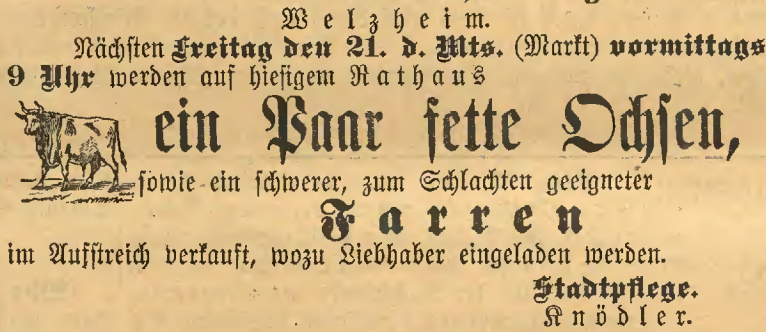 Welzheim.
Nächsten Freitag den 21. d. Mts. (Markt) vormittags
9 Uhr werden auf hiesigem Rathaus
ein Paar fette Ochsen,
sowie ein schwerer, zum Schlachten geeigneter
Farren
im Aufstreich verkauft, wozu Liebhaber eingeladen werden.
Stadtpflege.
Knödler.